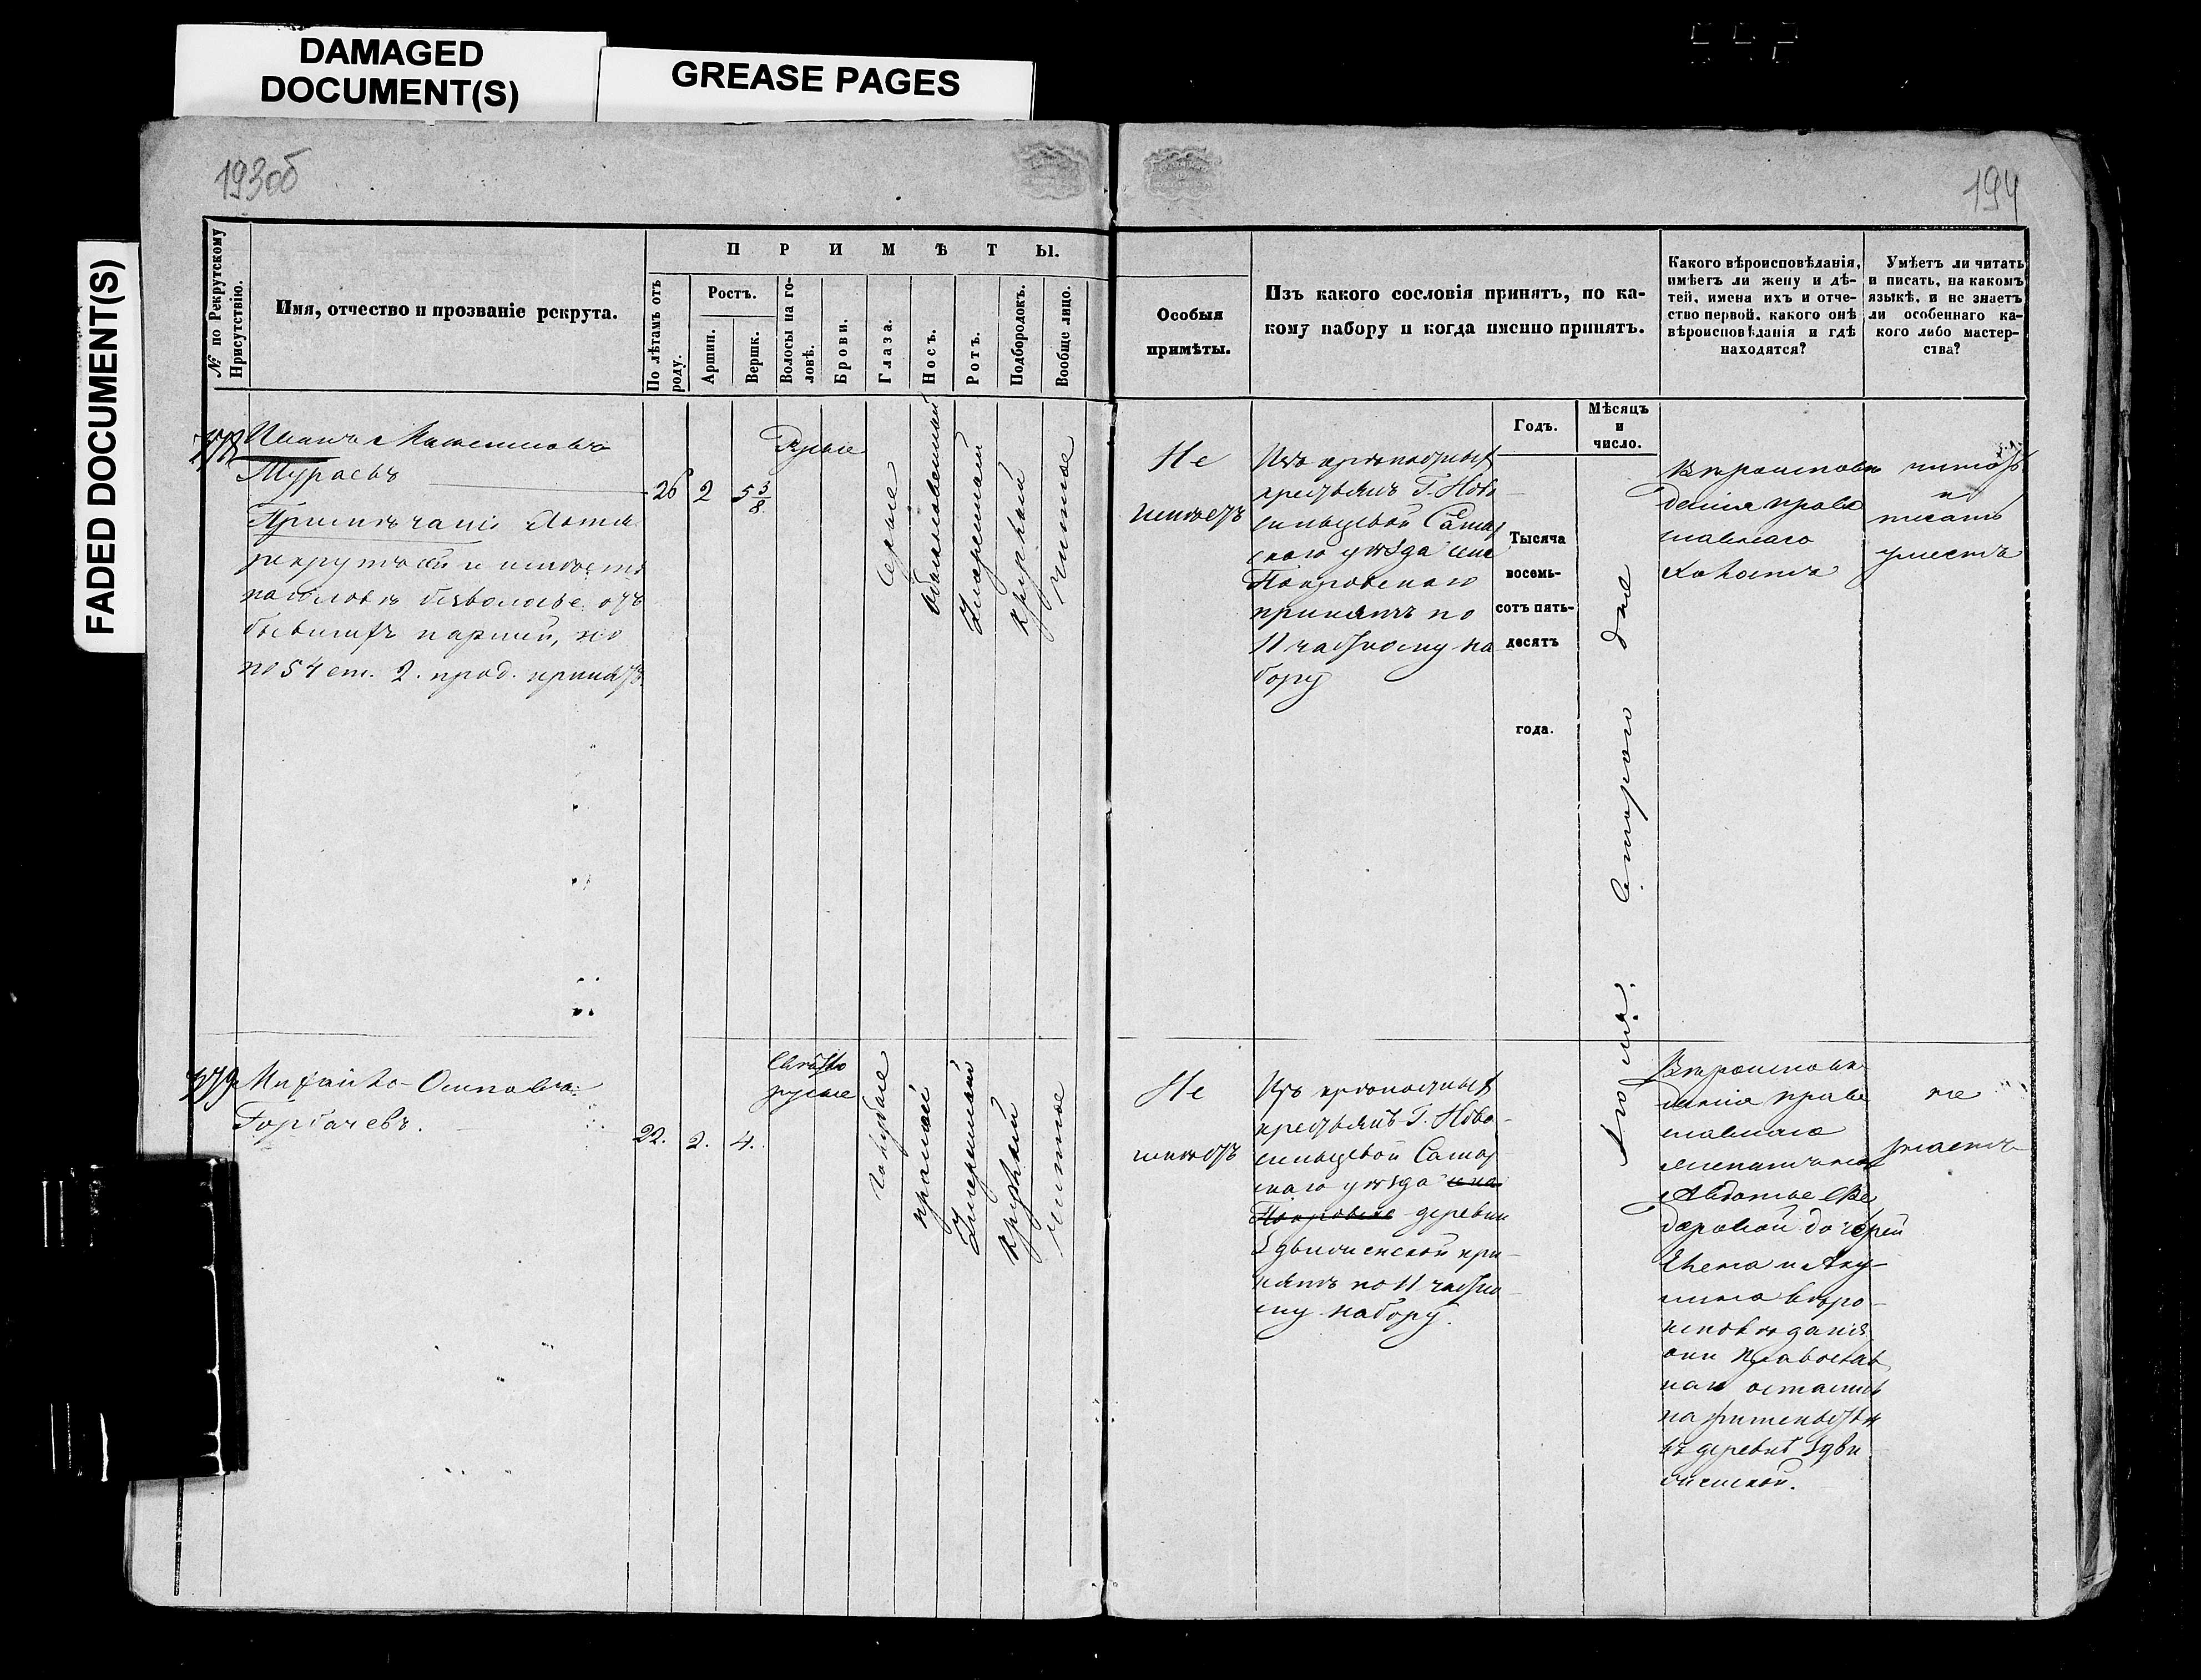 DAMAGED
DOCUMENT(S)
GREASE PAGES
FADED DOCUMENT(S)
193об
194
№ по Рекрутскому
Присутствію.
Имя, отчество и прозваніе рекрута.
ПРИМѢТЫ.
По лѣтамъ отъ
роду.
Ростъ.
Аршин.
Вершк.
Волосы на го-
ловѣ.
Брови.
Глаза.
Носъ.
Ротъ.
Подбородокъ.
Вообще лицо.
Особыя
примѣты.
Изъ какого сословія принятъ, по ка-
кому набору и когда именно принятъ.
Какого вѣроисповѣданія,
имѣетъ ли жену и дѣ-
тей, имена ихъ и отче-
ство первой, какого онѣ
вѣроисповѣданія и гдѣ
находятся?
Умѣетъ ли читать
и писать, на какомъ
языкѣ, и не знаетъ
ли особеннаго ка-
кого либо мастер-
ства?
Годъ.
Мѣсяцъ
и
число.
Мураевъ
Примѣчаніе
рекрутъ сей и имѣетъ
на головѣ
бывшихъ партій, но
по 54 ст. 2. прод. принятъ.
26
2
5 3/8
Русые
Серые
обыкновенный
Умеренный
круглый
чистое
Не
имѣетъ
Изъ крѣпостныхъ
крестьянъ Г. Ново
сильцевой Самар
скаго уѣзда села
Покровскаго
принятъ по
11 частному на
бору
Тысяча
восемь-
сотъ пять-
десятъ
года.
Вѣроисповѣ
данія право
славнаго
холостъ
читать
и
писать
умеетъ
Михайло Осиповъ
Горбачевъ.
22.
2.
4.
Светло
русые
Голубые
прямой
Умеренный
круглый
чистое
Не
имѣетъ
Изъ крѣпостныхъ
крестьянъ Г. Ново-
сильцевой Самар
скаго уѣзда села
Покровска деревни
принятъ по 11 частно
му набору.
втораго дня
Вѣроисповѣ
данія право
славнаго
женатъ на
Авдотье Фе
доровой дочерей
Елена и Аку-
лина вѣро-
исповѣданія
они православ
наго остались
на жительствѣ
въ деревнѣ
не
умеетъ